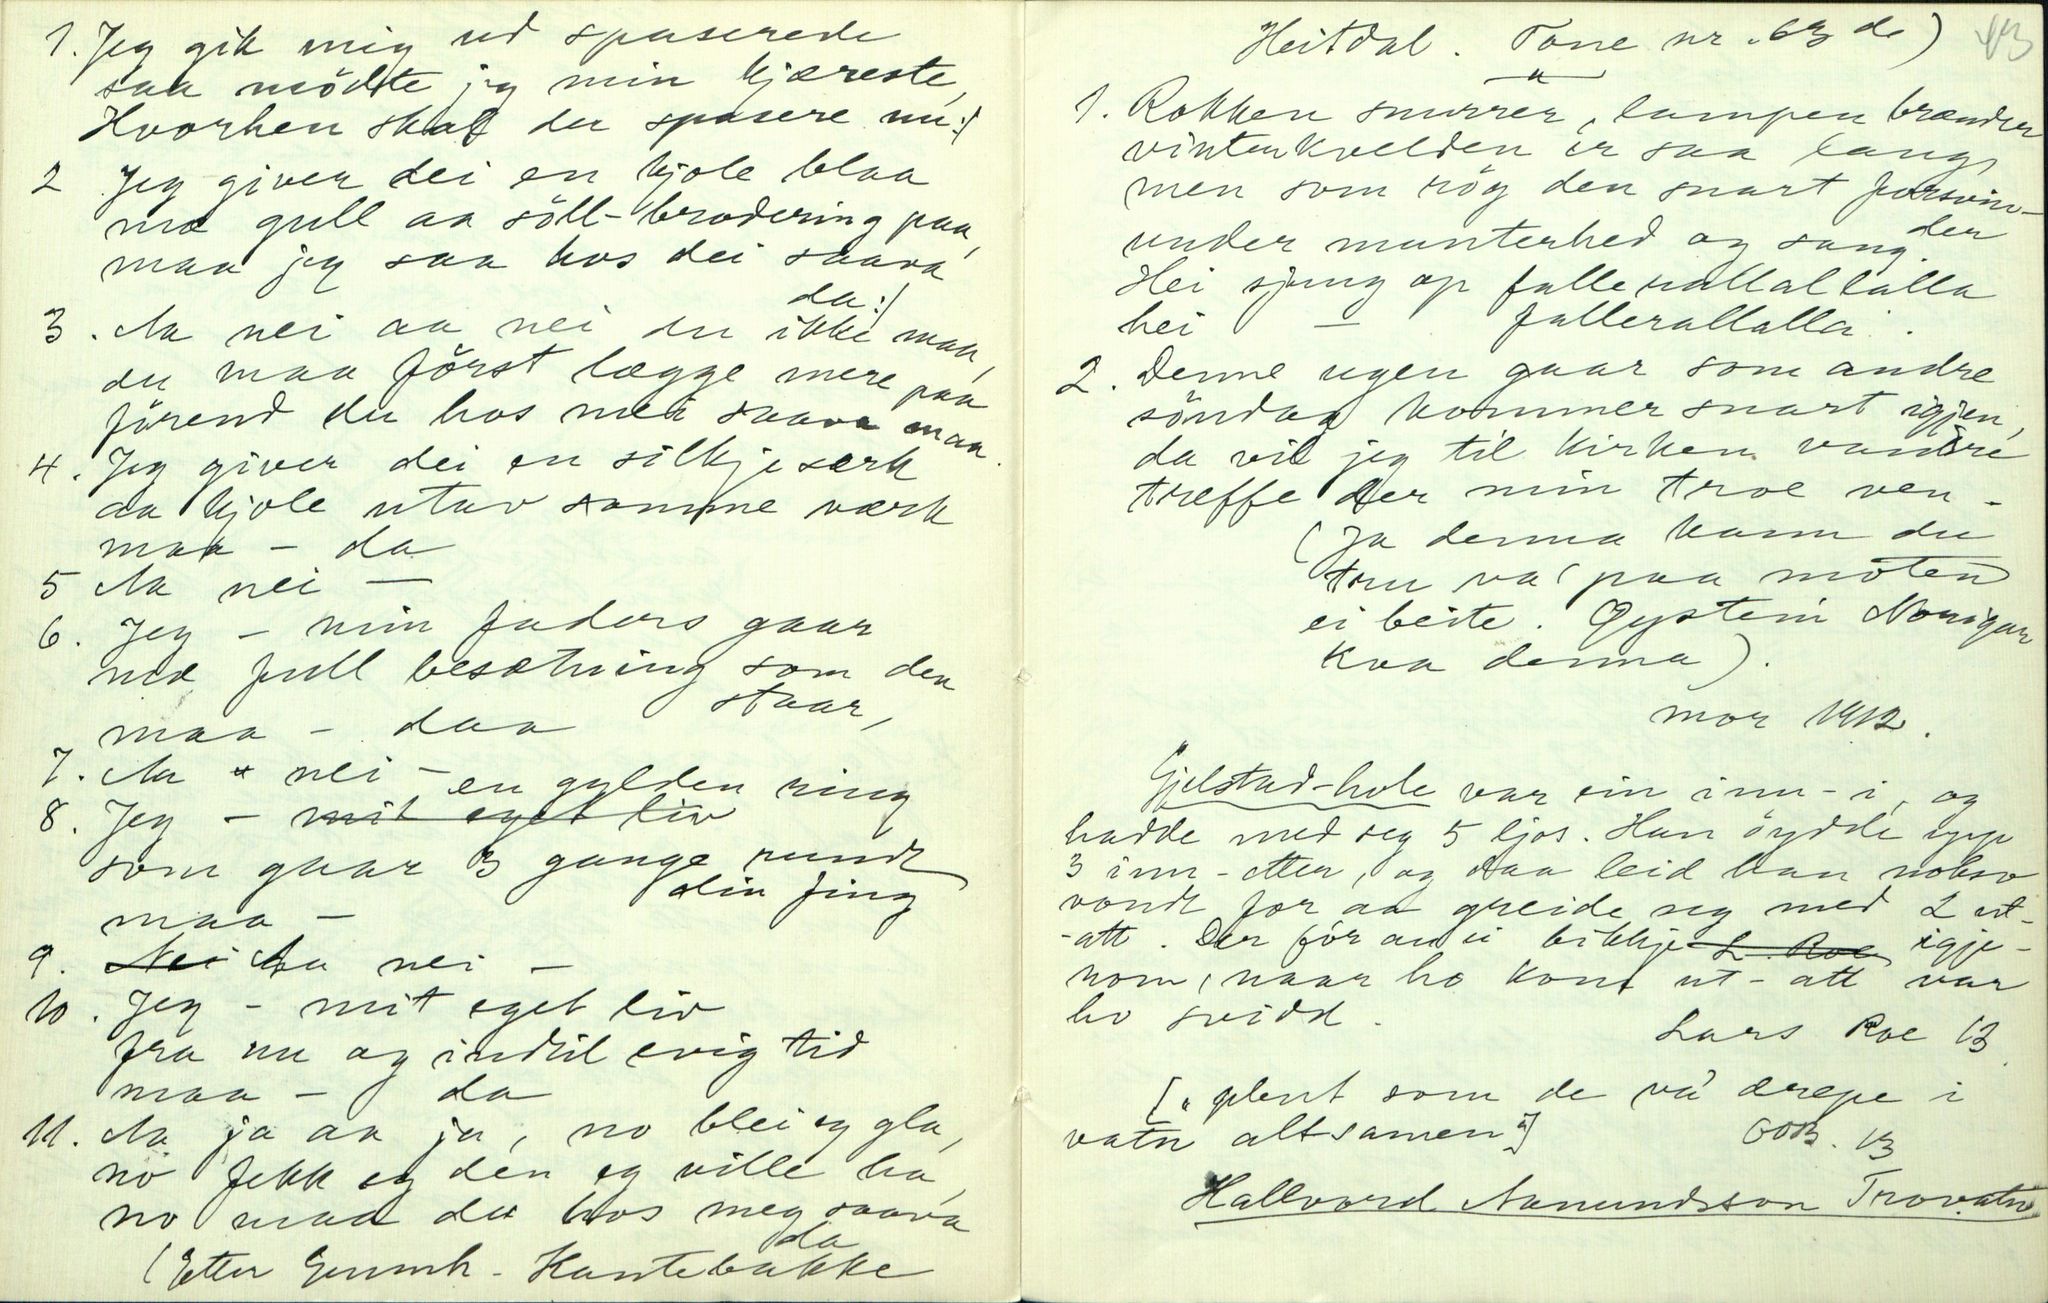 1. Jeg gik mig ud spaserede
saa mödte jeg min kjæreste,
Hvorhen skal du spasere nu:/
2 Jeg giver dei en kjole blaa
mæ gull aa söll-brodering paa,
maa jeg saa hos dei saava
da:/
3. Aa nei aa nei du ikke maa,
du maa först lægge mere paa
förend du hos mei saava maa.
4. Jeg giver dei en silkjesærk
aa kjole utav somme værk
maa - da
5 Aa nei —
6. Jeg - min faders gaar
mæ full besætning som den
staar,
maa - daa
7. Aa nei -
8. Jeg - mit eget liv en gylden ring
som gaar 3 gange rundt
din fing
maa -
9. Nei Aa nei -
10. Jeg - mit eget liv
fra nu og indtil evig tid
maa - da
11. Aa ja aa ja, no blei eg gla,
no fekk eg den eg ville ha,
no maa du hos meg saava
da
(Etter Gunnh. Kantebakke
Heitdal. Tone nr. 63 de) 43
1. Rokken snurrer, lampen brænder
vinterkvelden er saa lang,
men som røg den snart forsvin-
der
under munterhed og sang.
Hei sjung op fallerallallalla
hei — fallerallalla.
2. Denne ugen gaar som andre
söndag kommer snart igjen,
da vil jeg til kirken vandre
træffe der min troe ven -
(Ja denna kann du
tru va' paa moten
ei beite. Øystein
kva denna).
mor 1912.
Gjelstad-hole var ein inn-i, og
hadde med seg 5 ljos. Han öydde upp
3 inn-etter, og daa leid han nokso
vondt for aa greide seg med 2 ut-
-att. Der för au ei bikkje L. Roe igje-
nom, naar ho kom ut-att var
ho svidd.
Lars Roe 13
[" plent som de va' dræpe i
vatn altsamen"] GOB. 13
Hallvord Aamundsson Trovatn